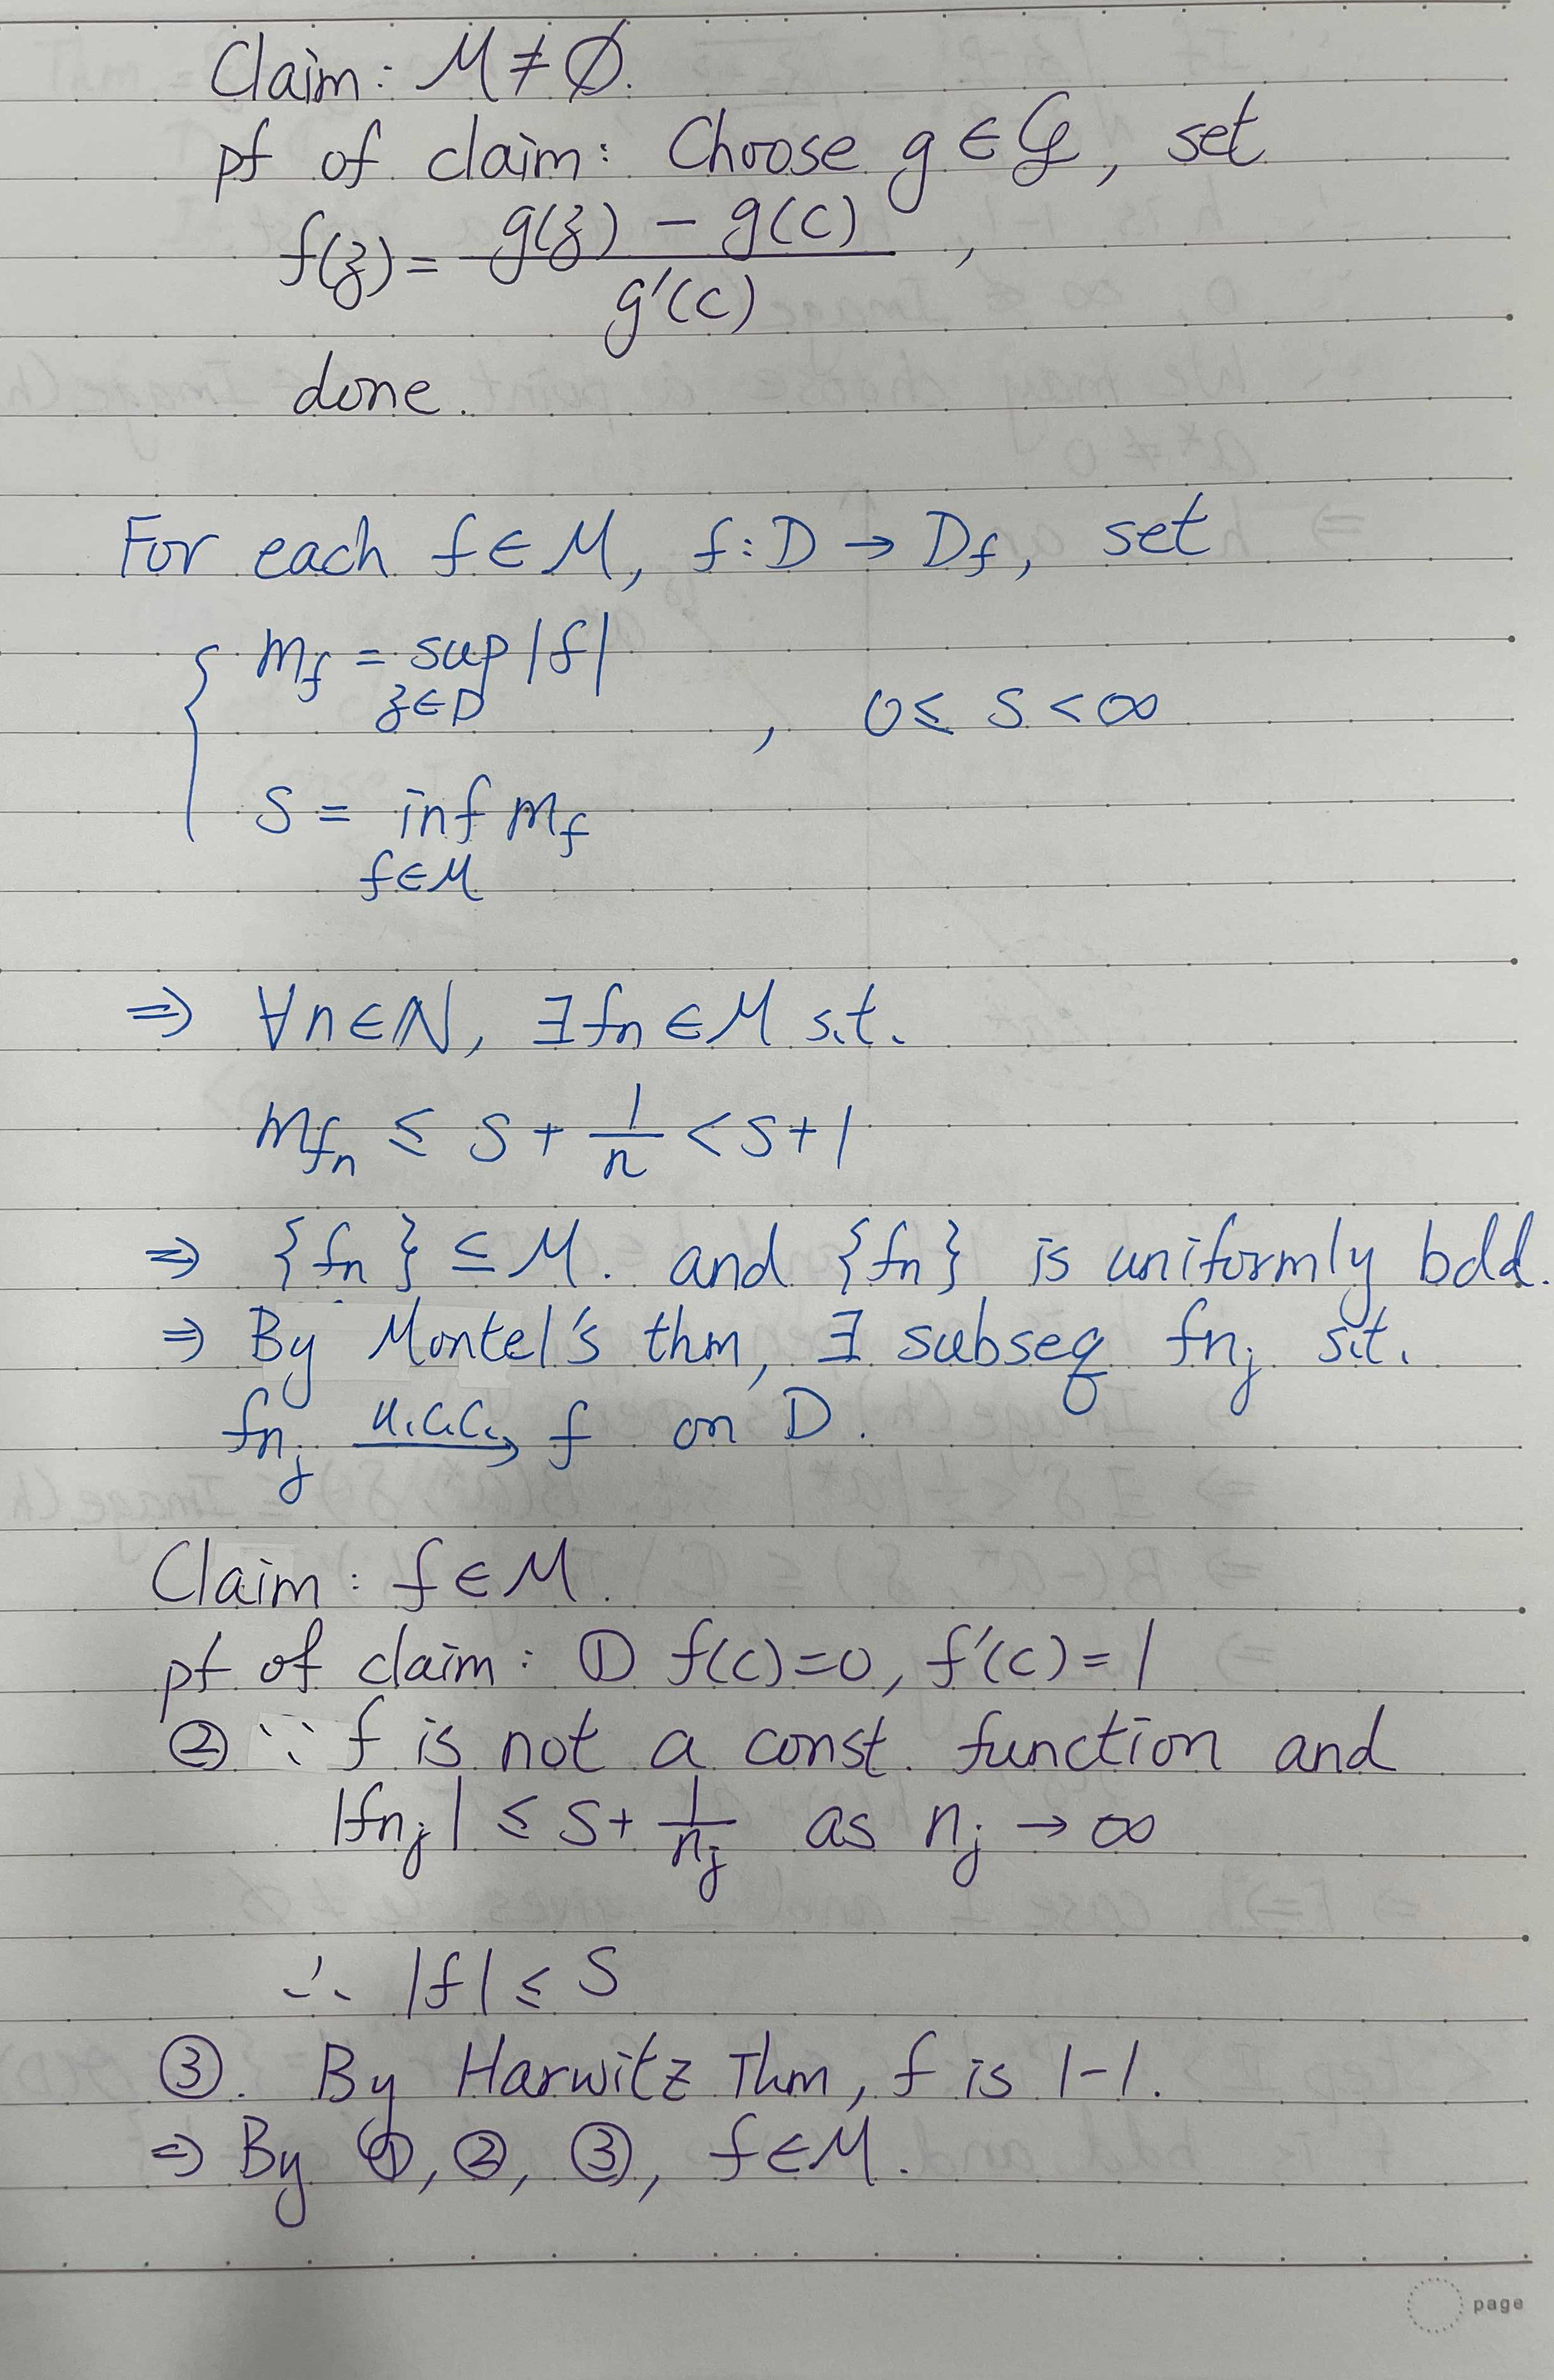 Claim: M ≠ ∅.
pf of claim: Choose g ∈ G, set
f(z) = (g(z) − g(c)) / g'(c) ,
done.
For each f ∈ M, f: D → Df, set
{ mf = sup |f|
z∈D
, 0 ≤ S < ∞
S = inf mf
f∈M
⇒ ∀n∈N, ∃ fn ∈ M s.t.
mfn ≤ S + 1/n < S + 1
⇒ {fn} ⊆ M. and {fn} is uniformly bdd.
⇒ By Montel's thm, ∃ subseq fnj s.t.
fnj u.c.c.→ f on D.
Claim: f ∈ M.
pf of claim: ① f(c)=0, f'(c)=1
② ∵ f is not a const. function and
|fnj| ≤ S + 1/nj as nj → ∞
∴ |f| ≤ S
③. By Harwitz Thm, f is 1-1.
⇒ By ①, ②, ③, f ∈ M.
page